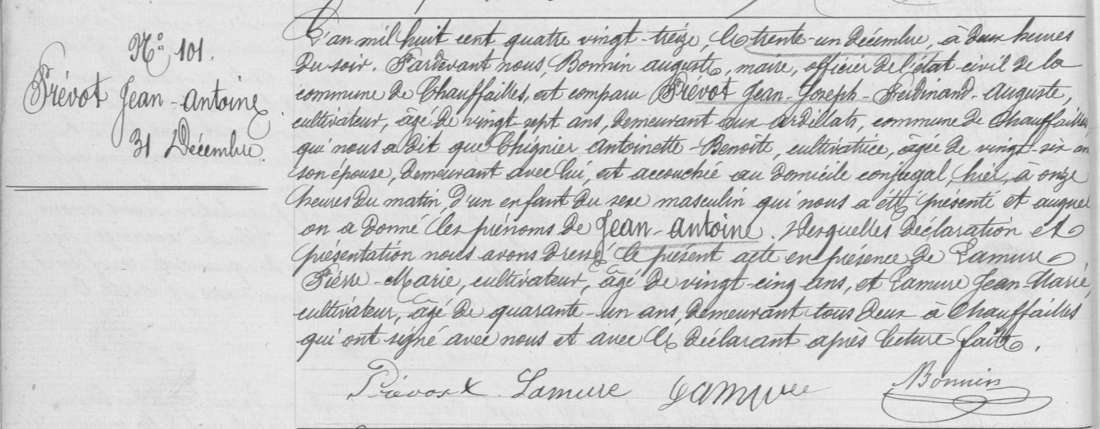 N° 101.
Prévot Jean-Antoine
31 Décembre.
L'an mil huit cent quatre vingt-treize, le trente-un décembre, à deux heures
du soir. Pardevant nous, Bonnin auguste, maire, officier de l'état civil de la
commune de Chauffailles, est comparu Prévot Jean-Joseph-Ferdinand-Auguste,
cultivateur, âgé de vingt sept ans, demeurant aux ardillats, commune de Chauffailles
qui nous a dit que Chignier Antoinette-Benoîte, cultivatrice, âgée de vingt-six an
son épouse, demeurant avec lui, est accouchée au domicile conjugal, hier, à onze
heures du matin d'un enfant du sexe masculin qui nous a été présenté et auquel
on a donné les prénoms de Jean-Antoine. Desquelles déclaration et
présentation nous avons dressé le présent acte en présence de Lamure
Pierre-Marie, cultivateur, âgé de vingt-cinq ans, et Lamure Jean-Marie,
cultivateur, âgé de quarante-un ans, demeurant tous deux à Chauffailles
qui ont signé avec nous et avec le déclarant après lecture faite.
Prévost Lamure Lamure Bonnin